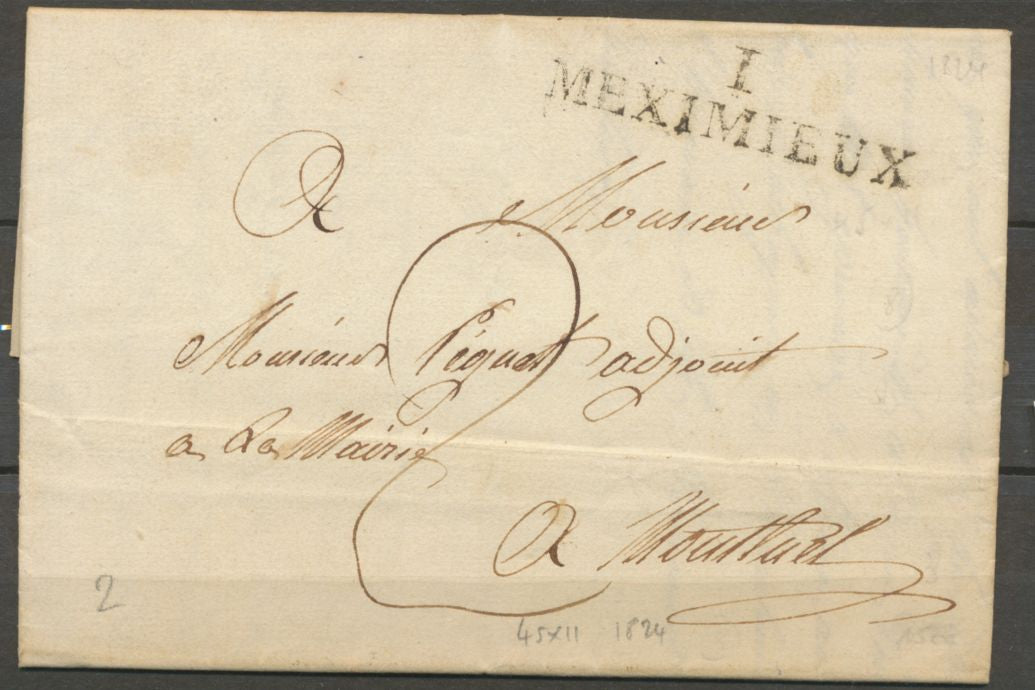 1824
I
MEXIMIEUX
A Monsieur
Monsieur Péguet adjoint
a La Mairie
A Montluel
2
2
45XII 1824